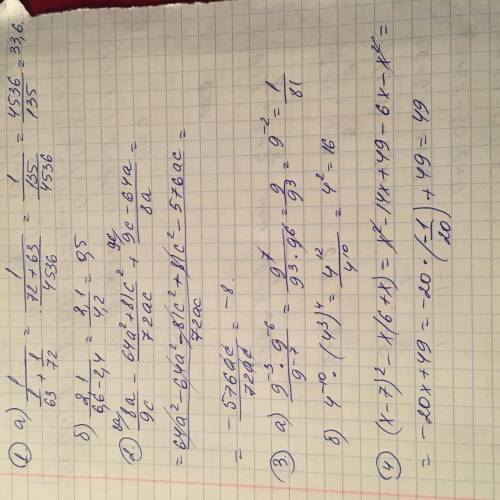 ① а) 1/(1/63 + 1/72) = 1/((72 + 63)/4536) = 1/(135/4536) = 4536/135 = 33,6.
б) 2,1/(6,6 - 2,4) = 2,1/4,2 = 0,5
② 8a/9c - (64a² + 81c²)/72ac + (9c - 64a)/8a =
= (64a² - 64a² - 81c² + 81c² - 576ac)/72ac =
= - 576ac/72ac = -8.
③ а) (9⁻³ · 9⁻⁶)/9⁻⁷ = 9⁷/(9³ · 9⁶) = 9/9³ = 9⁻² = 1/81
б) 4⁻¹⁰ · (4³)⁴ = 4¹²/4¹⁰ = 4² = 16
④ (x - 7)² - x(6 + x) = x² - 14x + 49 - 6x - x² =
= -20x + 49 = -20 · (-1/20) + 49 = 49